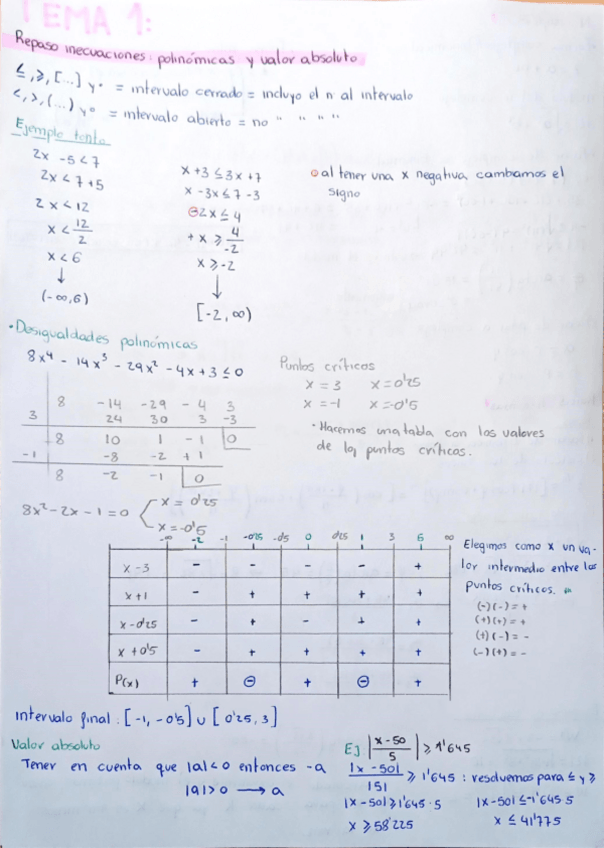 TEMA 1:
Repaso inecuaciones: polinómicas y valor absoluto
≤, ≥, [...] y • = intervalo cerrado = incluyo el n al intervalo
<, >, (...) y ° = intervalo abierto = no " " " "
Ejemplo tonto
2x - 5 < 7
2x < 7 + 5
2x < 12
x < 12/2
x < 6
↓
(-∞, 6)
x + 3 ≤ 3x + 7
x - 3x ≤ 7 - 3
⊖2x ≤ 4
+ x ≥ 4/-2
x ≥ -2
↓
[-2, ∞)
al tener una x negativa, cambiamos el
signo
• Desigualdades polinómicas
8x⁴ - 14x³ - 29x² - 4x + 3 ≤ 0
8 -14 -29 -4 3
3 24 30 3 -3
8 10 1 -1 0
-1 -8 -2 +1
8 -2 -1 0
8x² - 2x - 1 = 0
x = 0'25
x = -0'5
Puntos críticos
x = 3 x = 0'25
x = -1 x = -0'5
• Hacemos una tabla con los valores
de los puntos críticos.
-∞ -2 -1 -0'25 -0'5 0 0'25 1 3 5 ∞
x - 3 - - - - +
x + 1 - + + + +
x - 0'25 - + - + +
x + 0'5 - + + + +
P(x) + ⊖ + ⊖ +
Elegimos como x un va-
lor intermedio entre los
puntos críticos.
(-)(-) = +
(+)(+) = +
(+)(-) = -
(-)(+) = -
Intervalo final: [-1, -0'5] ∪ [0'25, 3]
Valor absoluto
Tener en cuenta que |a| < 0 entonces -a
|a| > 0 → a
Ej |x-50/5| ≥ 1'645
|x-50|/|5| ≥ 1'645 : resolvemos para ≤ y ≥
|x-50| ≥ 1'645·5 |x-50| ≤ -1'645·5
x ≥ 58'225 x ≤ 41'775